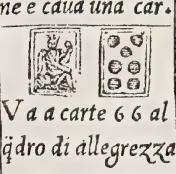 ne e caua una car.
V a a carte 6 6 al
q̃dro di allegrezza